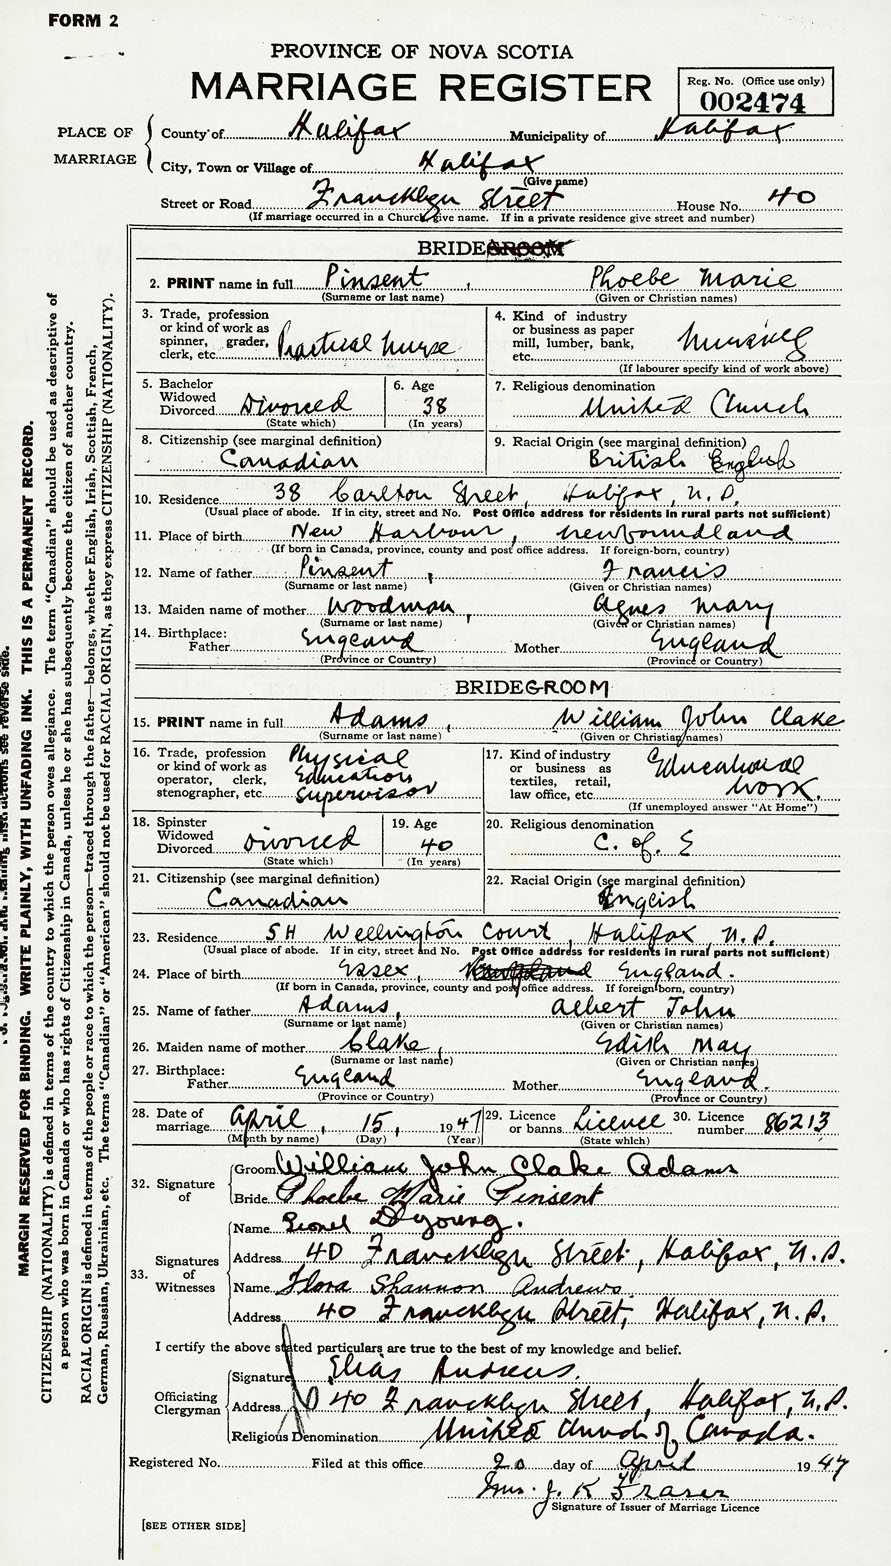 FORM 2
PROVINCE OF NOVA SCOTIA
MARRIAGE REGISTER
Reg. No. (Office use only)
002474
PLACE OF MARRIAGE
County of Halifax Municipality of Halifax
City, Town or Village of Halifax
(Give name)
Street or Road Francklyn Street House No. 40
(If marriage occurred in a Church give name. If in a private residence give street and number)
BRIDEGROOM
2. PRINT name in full Pinsent, Phoebe Marie
(Surname or last name) (Given or Christian names)
3. Trade, profession or kind of work as spinner, grader, clerk, etc. Practical Nurse
4. Kind of industry or business as paper mill, lumber, bank, etc. Nursing
(If labourer specify kind of work above)
5. Bachelor Widowed Divorced Divorced
(State which)
6. Age 38
(In years)
7. Religious denomination United Church
8. Citizenship (see marginal definition) Canadian
9. Racial Origin (see marginal definition) British English
10. Residence 38 Carlton Street, Halifax, N.S.
(Usual place of abode. If in city, street and No. Post Office address for residents in rural parts not sufficient)
11. Place of birth New Harbour, Newfoundland
(If born in Canada, province, county and post office address. If foreign-born, country)
12. Name of father Pinsent, Francis
(Surname or last name) (Given or Christian names)
13. Maiden name of mother Woodman, Agnes Mary
(Surname or last name) (Given or Christian names)
14. Birthplace: Father England Mother England
(Province or Country) (Province or Country)
BRIDEGROOM
15. PRINT name in full Adams, William John Clake
(Surname or last name) (Given or Christian names)
16. Trade, profession or kind of work as operator, clerk, stenographer, etc. Physical Education Supervisor
17. Kind of industry or business as textiles, retail, law office, etc. Educational Work.
(If unemployed answer "At Home")
18. Spinster Widowed Divorced Divorced
(State which)
19. Age 40
(In years)
20. Religious denomination C. of E
21. Citizenship (see marginal definition) Canadian
22. Racial Origin (see marginal definition) English
23. Residence 5H Wellington Court, Halifax, N.S.
(Usual place of abode. If in city, street and No. Post Office address for residents in rural parts not sufficient)
24. Place of birth Essex, England.
(If born in Canada, province, county and post office address. If foreign-born, country)
25. Name of father Adams, Albert John
(Surname or last name) (Given or Christian names)
26. Maiden name of mother Clake, Edith May
(Surname or last name) (Given or Christian names)
27. Birthplace: Father England Mother England.
(Province or Country) (Province or Country)
28. Date of marriage April, 15, 1947
(Month by name) (Day) (Year)
29. Licence or banns Licence
(State which)
30. Licence number 86213
32. Signature of
Groom William John Clake Adams
Bride Phoebe Marie Pinsent
33. Signatures of Witnesses
Name Lionel DeYoung.
Address 40 Francklyn Street, Halifax, N.S.
Name Flora Shannon Andrews.
Address 40 Francklyn Street, Halifax, N.S.
I certify the above stated particulars are true to the best of my knowledge and belief.
Officiating Clergyman
Signature Elias Andrews.
Address 40 Francklyn Street, Halifax, N.S.
Religious Denomination United Church of Canada.
Registered No. Filed at this office 20 day of April 1947
Mrs. J. K Fraser
Signature of Issuer of Marriage Licence
[SEE OTHER SIDE]
MARGIN RESERVED FOR BINDING. WRITE PLAINLY, WITH UNFADING INK. THIS IS A PERMANENT RECORD.
CITIZENSHIP (NATIONALITY) is defined in terms of the country to which the person owes allegiance. The term "Canadian" should be used as descriptive of
a person who was born in Canada or who has rights of Citizenship in Canada, unless he or she has subsequently become the citizen of another country.
RACIAL ORIGIN is defined in terms of the people or race to which the person—traced through the father—belongs, whether English, Irish, Scottish, French,
German, Russian, Ukrainian, etc. The terms "Canadian" or "American" should not be used for RACIAL ORIGIN, as they express CITIZENSHIP (NATIONALITY).